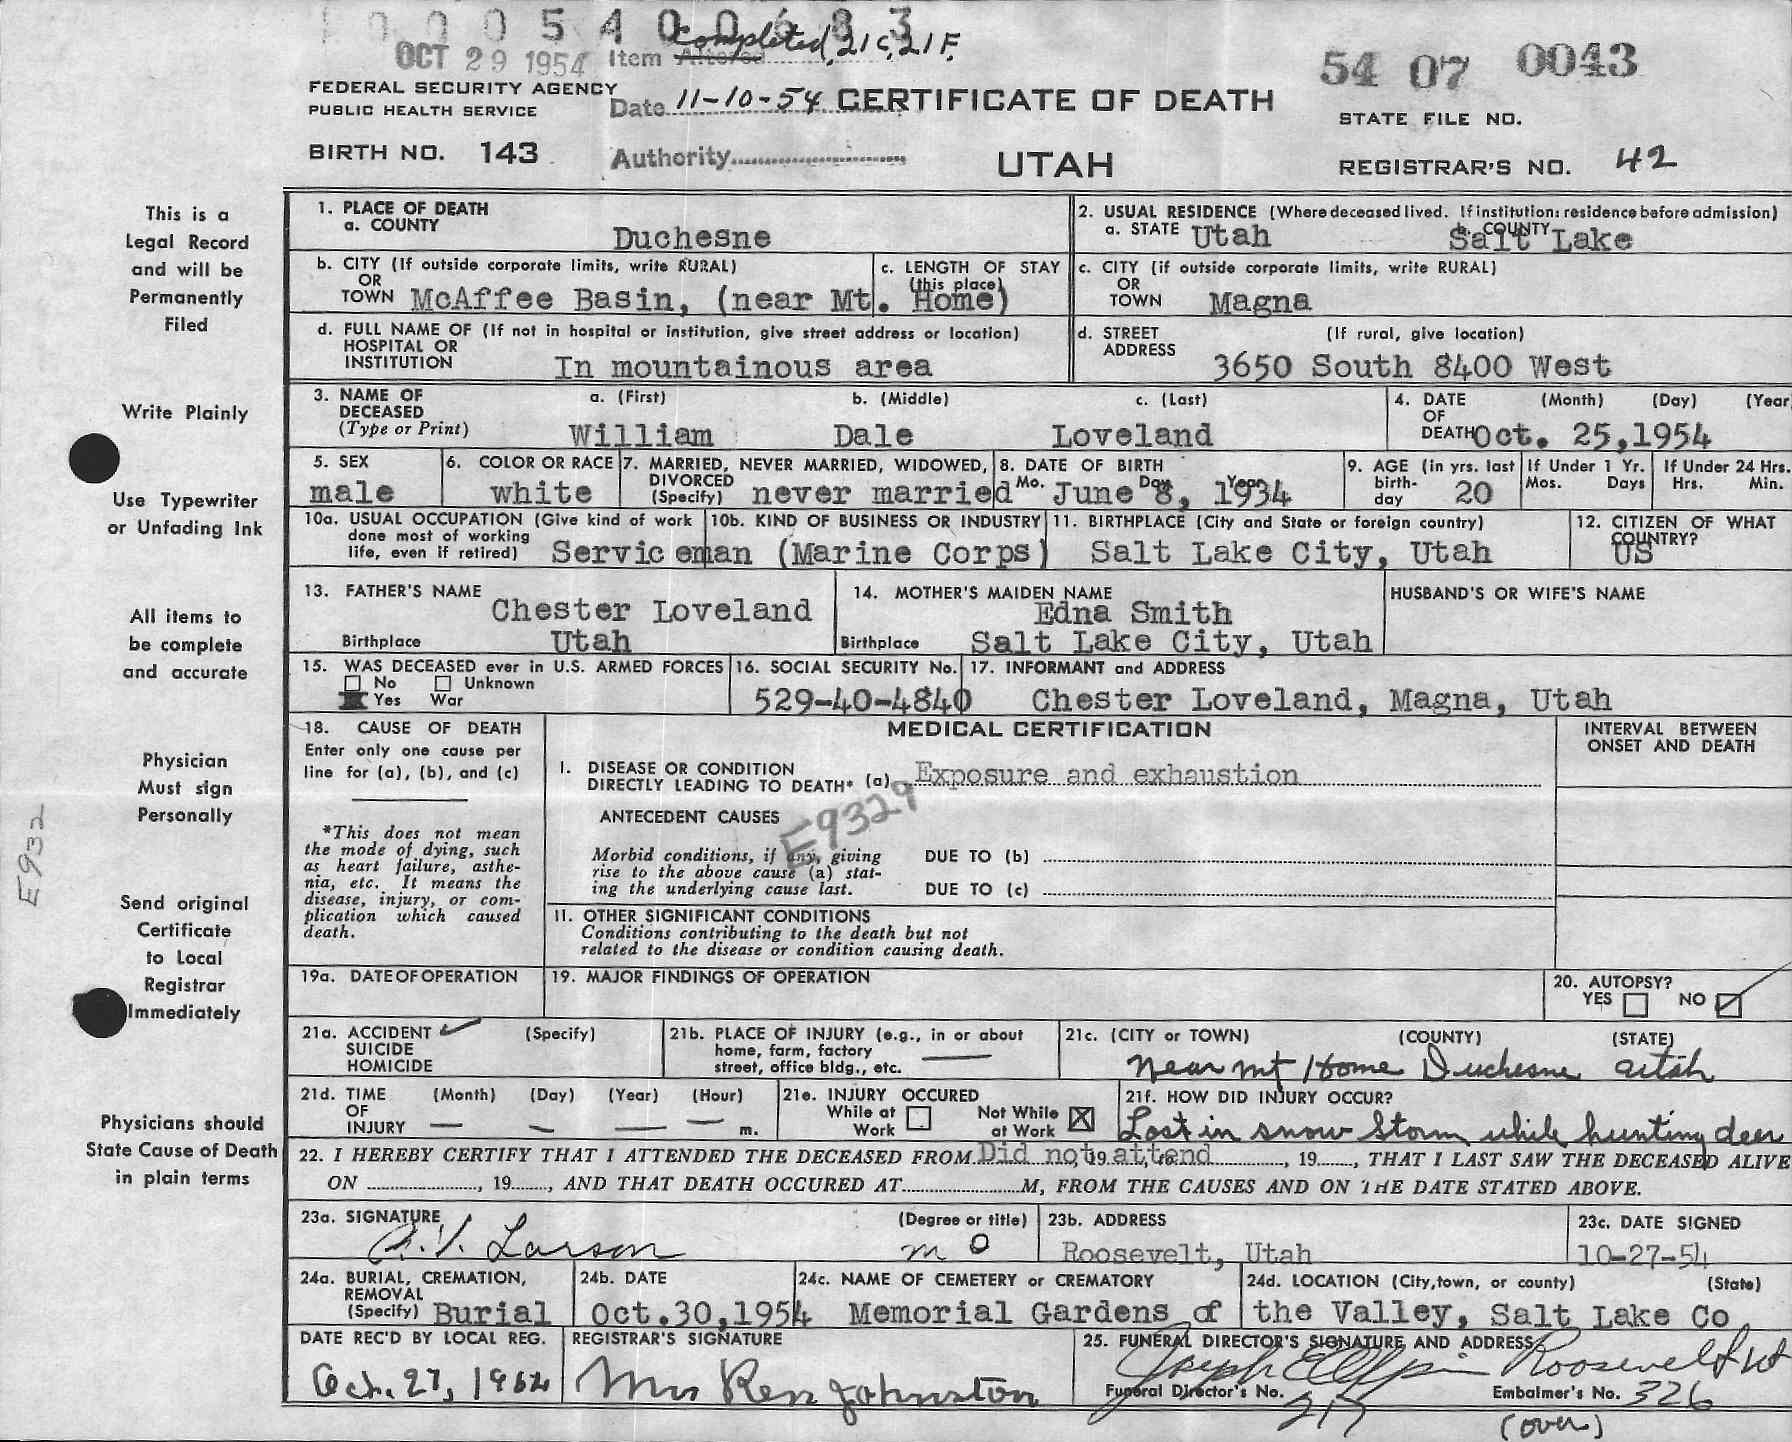 0 0 0 5 4 0 0 6 8 3
OCT 29 1954 Item Altered Completed, 21C, 21F.
54 07 0043
FEDERAL SECURITY AGENCY
PUBLIC HEALTH SERVICE
Date 11-10-54 CERTIFICATE OF DEATH
STATE FILE NO.
BIRTH NO. 143 Authority
UTAH
REGISTRAR'S NO. 42
This is a
Legal Record
and will be
Permanently
Filed
Write Plainly
Use Typewriter
or Unfading Ink
All items to
be complete
and accurate
Physician
Must sign
Personally
Send original
Certificate
to Local
Registrar
Immediately
Physicians should
State Cause of Death
in plain terms
E932
1. PLACE OF DEATH
a. COUNTY Duchesne
2. USUAL RESIDENCE (Where deceased lived. If institution: residence before admission)
a. STATE Utah b. COUNTY Salt Lake
b. CITY (If outside corporate limits, write RURAL)
OR
TOWN McAffee Basin, (near Mt. Home)
c. LENGTH OF STAY
(this place)
c. CITY (if outside corporate limits, write RURAL)
OR
TOWN Magna
d. FULL NAME OF (If not in hospital or institution, give street address or location)
HOSPITAL OR
INSTITUTION In mountainous area
d. STREET (If rural, give location)
ADDRESS 3650 South 8400 West
3. NAME OF a. (First) b. (Middle) c. (Last)
DECEASED
(Type or Print) William Dale Loveland
4. DATE (Month) (Day) (Year
OF
DEATH Oct. 25, 1954
5. SEX
male
6. COLOR OR RACE
white
7. MARRIED, NEVER MARRIED, WIDOWED,
DIVORCED
(Specify) never married
8. DATE OF BIRTH
Mo. Day Year
June 8, 1934
9. AGE (in yrs. last
birth-
day 20
If Under 1 Yr.
Mos. Days
If Under 24 Hrs.
Hrs. Min.
10a. USUAL OCCUPATION (Give kind of work
done most of working
life, even if retired) Serviceman (Marine Corps)
10b. KIND OF BUSINESS OR INDUSTRY
11. BIRTHPLACE (City and State or foreign country)
Salt Lake City, Utah
12. CITIZEN OF WHAT
COUNTRY?
US
13. FATHER'S NAME
Chester Loveland
Birthplace Utah
14. MOTHER'S MAIDEN NAME
Edna Smith
Birthplace Salt Lake City, Utah
HUSBAND'S OR WIFE'S NAME
15. WAS DECEASED ever in U.S. ARMED FORCES
No Unknown
Yes War
16. SOCIAL SECURITY No.
529-40-4840
17. INFORMANT and ADDRESS
Chester Loveland, Magna, Utah
18. CAUSE OF DEATH
Enter only one cause per
line for (a), (b), and (c)
*This does not mean
the mode of dying, such
as heart failure, asthe-
nia, etc. It means the
disease, injury, or com-
plication which caused
death.
MEDICAL CERTIFICATION
INTERVAL BETWEEN
ONSET AND DEATH
I. DISEASE OR CONDITION
DIRECTLY LEADING TO DEATH* (a) Exposure and exhaustion
E9329
ANTECEDENT CAUSES
Morbid conditions, if any, giving
rise to the above cause (a) stat-
ing the underlying cause last.
DUE TO (b)
DUE TO (c)
II. OTHER SIGNIFICANT CONDITIONS
Conditions contributing to the death but not
related to the disease or condition causing death.
19a. DATE OF OPERATION
19. MAJOR FINDINGS OF OPERATION
20. AUTOPSY?
YES NO
21a. ACCIDENT (Specify)
SUICIDE
HOMICIDE
21b. PLACE OF INJURY (e.g., in or about
home, farm, factory
street, office bldg., etc.
21c. (CITY or TOWN) (COUNTY) (STATE)
Near Mt Home Duchesne Utah
21d. TIME (Month) (Day) (Year) (Hour)
OF
INJURY m.
21e. INJURY OCCURED
While at Work
Not While at Work X
21f. HOW DID INJURY OCCUR?
Lost in snow storm while hunting deer
22. I HEREBY CERTIFY THAT I ATTENDED THE DECEASED FROM Did not attend, 19, to, 19, THAT I LAST SAW THE DECEASED ALIVE
ON, 19, AND THAT DEATH OCCURED AT M, FROM THE CAUSES AND ON THE DATE STATED ABOVE.
23a. SIGNATURE (Degree or title)
R. V. Larson MD
23b. ADDRESS
Roosevelt, Utah
23c. DATE SIGNED
10-27-54
24a. BURIAL, CREMATION,
REMOVAL
(Specify) Burial
24b. DATE
Oct.30,1954
24c. NAME OF CEMETERY or CREMATORY
Memorial Gardens of the Valley, Salt Lake Co
24d. LOCATION (City, town, or county) (State)
DATE REC'D BY LOCAL REG.
Oct. 27, 1954
REGISTRAR'S SIGNATURE
Mrs Ren Johnston
25. FUNERAL DIRECTOR'S SIGNATURE AND ADDRESS
Joseph Roosevelt Ut
Funeral Director's No. 217
Embalmer's No. 326
(over)